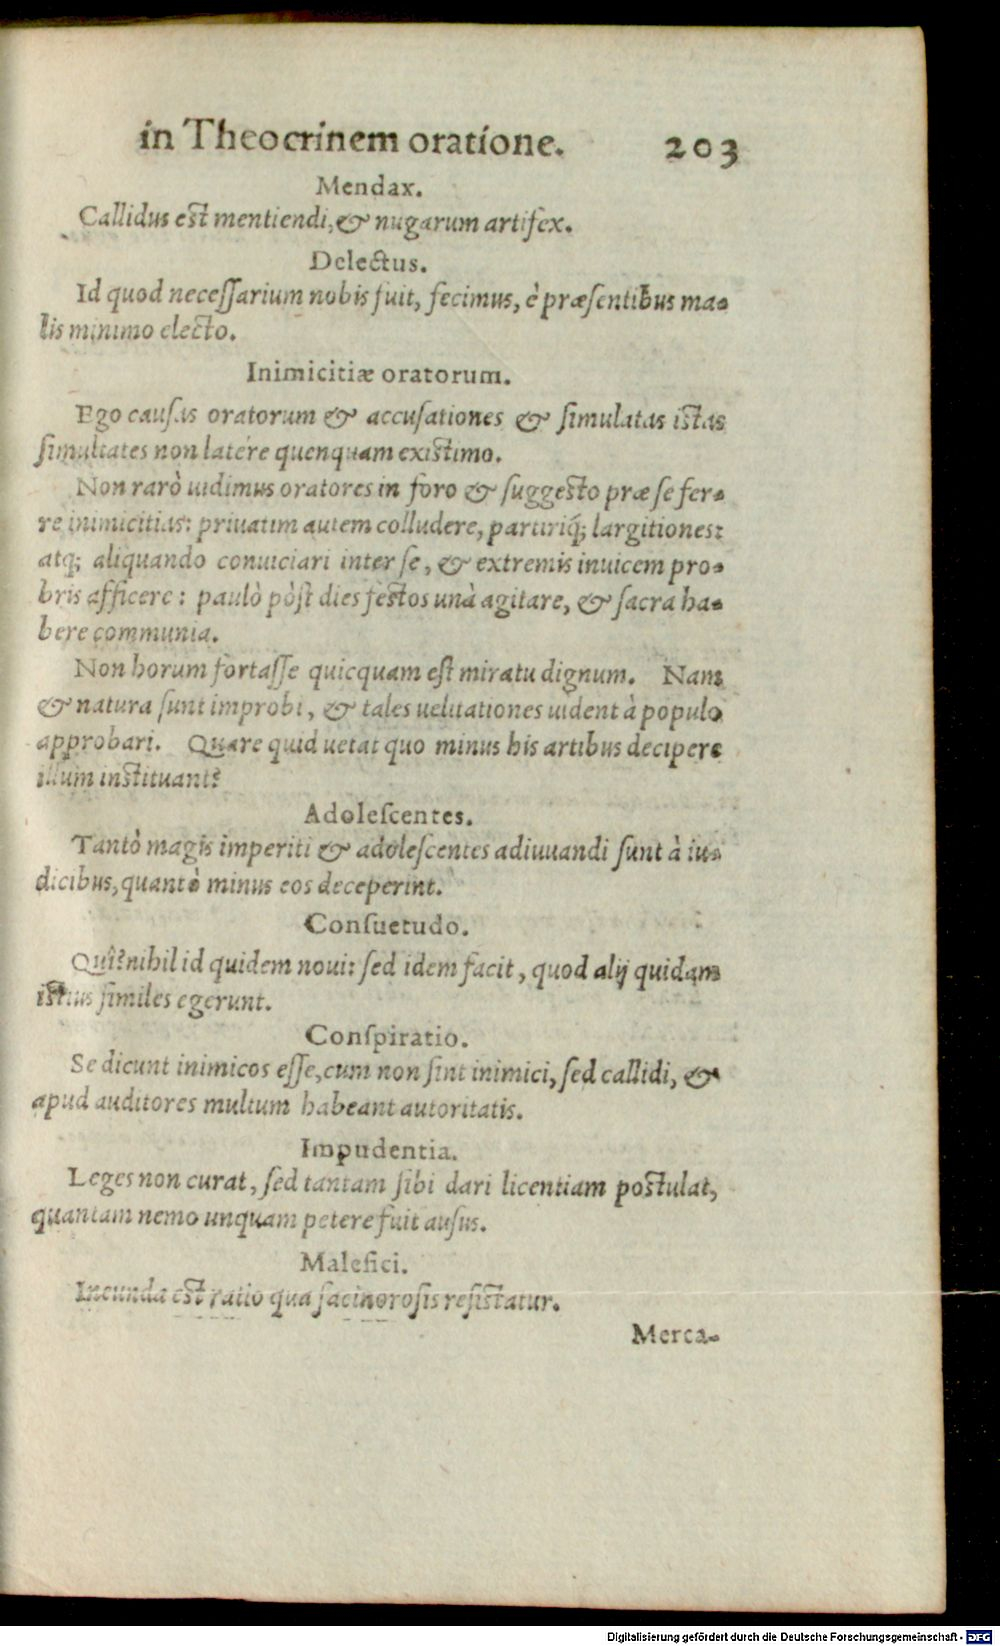 in Theocrinem oratione. 203
Mendax.
Callidus est mentiendi, & nugarum artifex.
Delectus.
Id quod neceſſarium nobis fuit, fecimus, è præſentibus ma-
lis minimo electo.
Inimicitiæ oratorum.
Ego cauſas oratorum & accuſationes & ſimulatas iſtas
ſimultates non latére quenquam exiſtimo.
Non rarò uidimus oratores in foro & ſuggeſto præ ſe fer-
re inimicitias: priuatim autem colludere, partiriq́; largitiones:
atq; aliquando conuiciari inter ſe, & extremis inuicem pro-
bris afficere: paulò pòſt dies feſtos unà agitare, & ſacra ha-
bere communia.
Non horum fortaſſe quicquam eſt miratu dignum. Nam
& natura ſunt improbi, & tales uelitationes uident à populo
approbari. Quare quid uetat quo minus his artibus decipere
illum inſtituant?
Adoleſcentes.
Tantò magis imperiti & adoleſcentes adiuuandi ſunt à iu-
dicibus, quantò minus eos deceperint.
Conſuetudo.
Quî? nihil id quidem noui: ſed idem facit, quod alij quidam
iſtius ſimiles egerunt.
Conſpiratio.
Se dicunt inimicos eſſe, cum non ſint inimici, ſed callidi, &
apud auditores multum habeant autoritatis.
Impudentia.
Leges non curat, ſed tantam ſibi dari licentiam poſtulat,
quantam nemo unquam petere fuit auſus.
Malefici.
Iucunda eſt ratio qua facinoroſis reſiſtatur.
Merca-
Digitalisierung gefördert durch die Deutsche Forschungsgemeinschaft - DFG